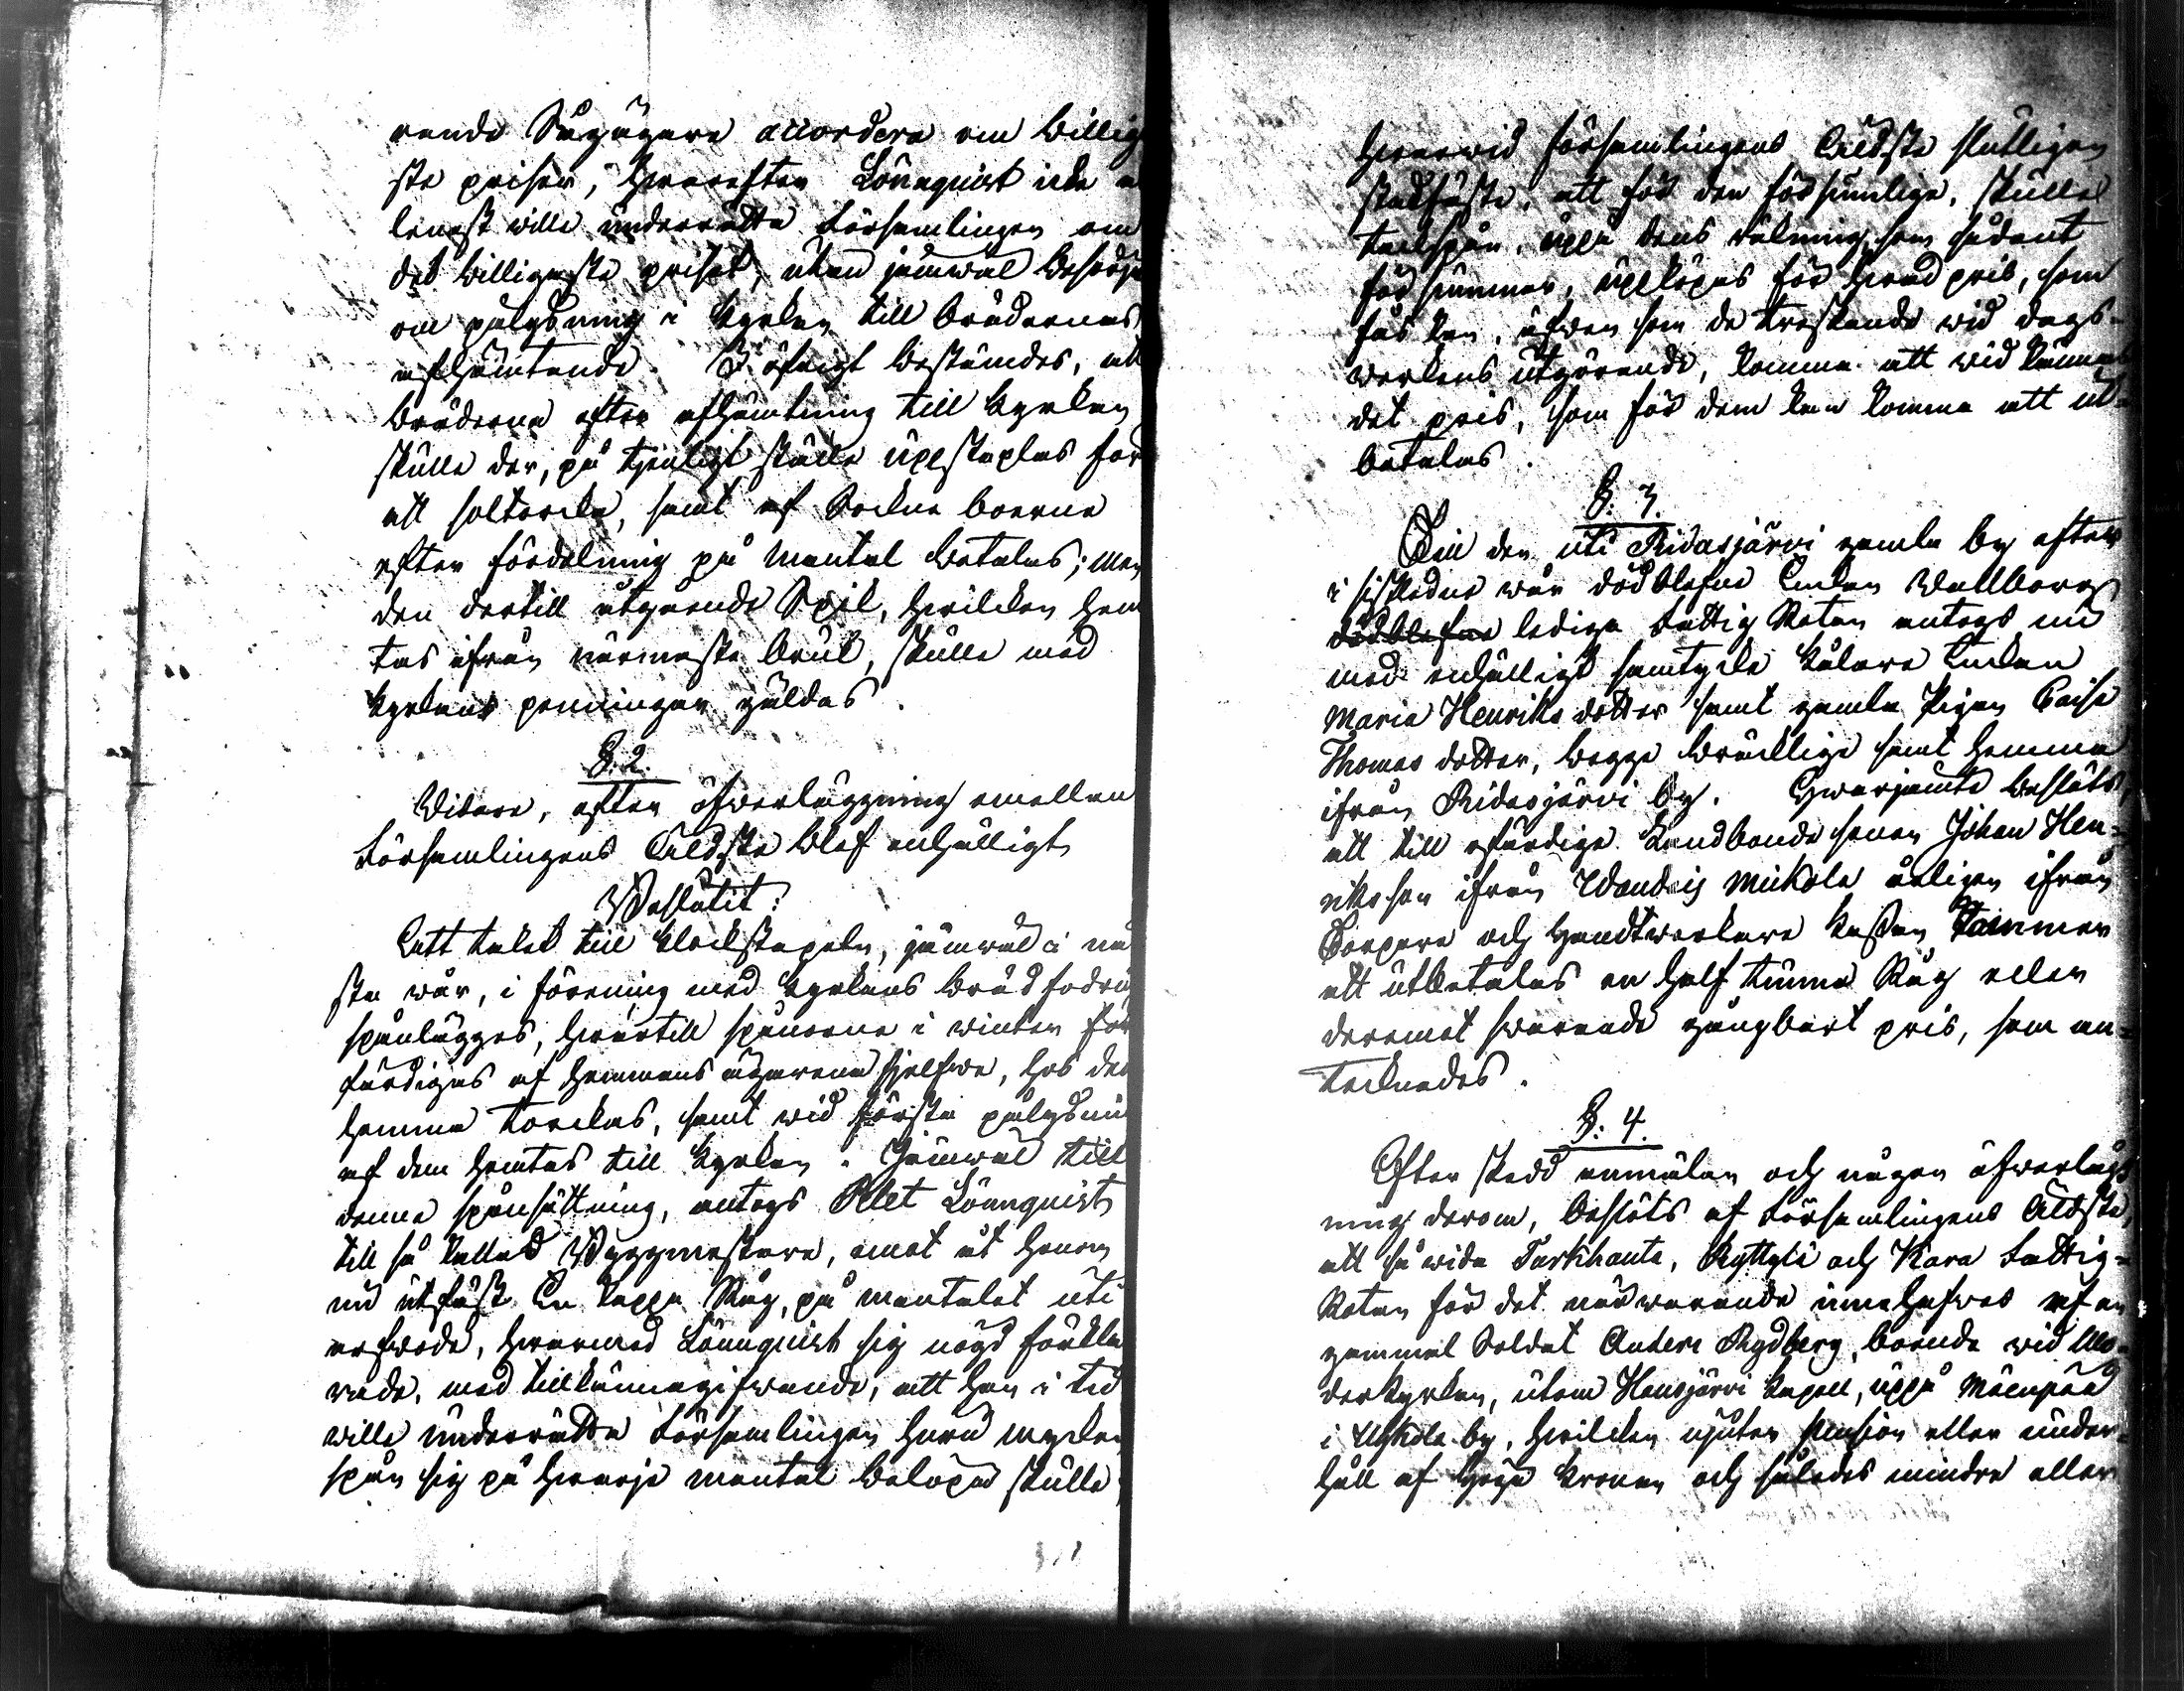 rande Sågägare accordera om billig
ste priser, hwarefter Lönnquist icke a
lenast wille underrätta Församlingen om
det billigaste priset, utan jemwäl besörja
om pålysning i Kyrkan till brädernas
afhämtande. I öfrigt bestämdes, att
bräderne efter afhämtning till Kyrkan
skulle der, på tjenligt ställe uppstaplas för
att soltorcka, samt af Sockne boerne
efter fördelning på mantal betalas; men
den dertill åtgående Spik, hvilcken hem
tas ifrån närmaste bruk, skulle med
Kyrkans penningar gäldas.
§. 2.
Widare, efter öfwerläggning emellan
Församlingens Äldste blef enhälligt
Beslutit:
Att taket till Klockstapeln, jämwäl i nä
sta wår, i förening med Kyrkans brädfodring
spånlägges, hwartill spånorne i winter för
färdigas af hemmans ägarena sjelfwe, hos dem
hemma torckas, samt wid första pålysning
af dem hemtas till Kyrkan. Jämwäl till
denna spånsättning, antogs Petet Lönnquist
till så kallad Byggmästare, emot åt honom
nu utfäst En kappa Råg, på mantalet uti
arfwode, hwarmed Lönnquist sig nögd förkla
rade, med tillkännagifwande, att han i tid
wille underrätta Församlingen huru mycken
spån sig på hwarje mantal belöpa skulle;
hwarwid Församlingens Äldste slutligen
stadfäste, att för den försumlige, skulle
takspån, uppå dens räkning, som sådant
försummar, uppköpas för hwad pris, som
fås kan, äfwen som de treskande wid dags-
werkens utgörande, komma att wid kännas
det pris, som för dem kan komma att ut-
betalas.
§. 3.
Till den uti Ridasjärvi gamla by efter
i sistledne wår dödblefne Enkan Wallborg
dödblefne lediga Fattig Roten antogs nu
med enhälligt samtycke Kålare Enkan
Maria Henriks dotter samt gamla Pigan Caisa
Thomas dotter, begge bräcklige samt hemma
ifrån Ridasjärvi by. Hwarjemte beslöts,
att till ofärdige Landbonde sonen Johan Hen-
riksson ifrån Wandais Mickola årligen ifrån
Torpare och Handtwerkare Kassan kommer
att utbetalas en half tunna Råg eller
deremot swarande gångbart pris, som an-
tecknades.
§. 4.
Efter skedd anmälan och någon öfwerlägg
ning derom, beslöts af Församlingens Äldste,
att så wida Turkhauta, Ryttylä och Kara Fattig-
Roten för det närwarande innehafwes af en
gammal Soldat Anders Rydberg, boende wid Mo-
derkyrkan, utom Hausjärvi Kapell, uppå Mäenpää
i Uhkola by, hvilcken njuter pension eller under-
håll af höga Kronan och således mindre eller